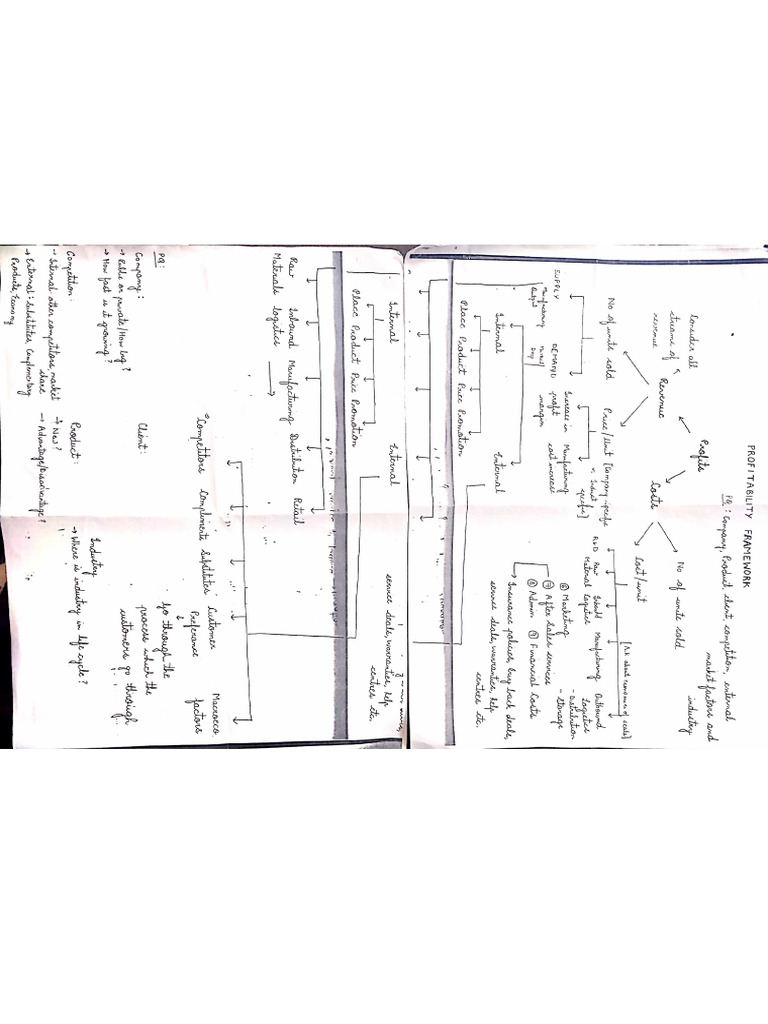 PROFITABILITY FRAMEWORK
PQ: Company, Product, client, competition, external
market factors and
industry
Profits
Revenue
Costs
Consider all
streams of
revenue
No of units sold
Price/Unit [Company-specific
v. Indust
specific]
No of units sold
Cost/unit
[Ask about economies of scale]
SUPPLY
DEMAND
Increase in
profit
margin
Manufacturing
cost increase
R&D
Raw
Material
Inbound
Logistics
Manufacturing
Outbound
Logistics
- Distribution
- Storage
⑥ Marketing
⑦ After Sales services
⑧ Admin ⑨ Financial Costs
→ Insurance policies, buy back deals,
service deals, warranties, help
centres etc.
Manufacturing
Internal
External
Place Product Price Promotion
service deals, warranties, help
centres etc.
Internal
External
Place Product Price Promotion
Raw
Materials
Inbound
logistics
Manufacturing
Distribution
Retail
Competitors
Compliments
Substitutes
Customer
Preference
Go through the
process which the
customers go through
Macroeco.
factors
PQ:
Company:
→ Public or private/How big?
→ How fast is it growing?
Client:
Competition:
→ Internal: other competitors, market
share
→ External: Substitutes, Complementary
Products, Economy
Product:
→ New?
→ Advantage/Disadvantage?
Industry
→ Where is industry in life cycle?